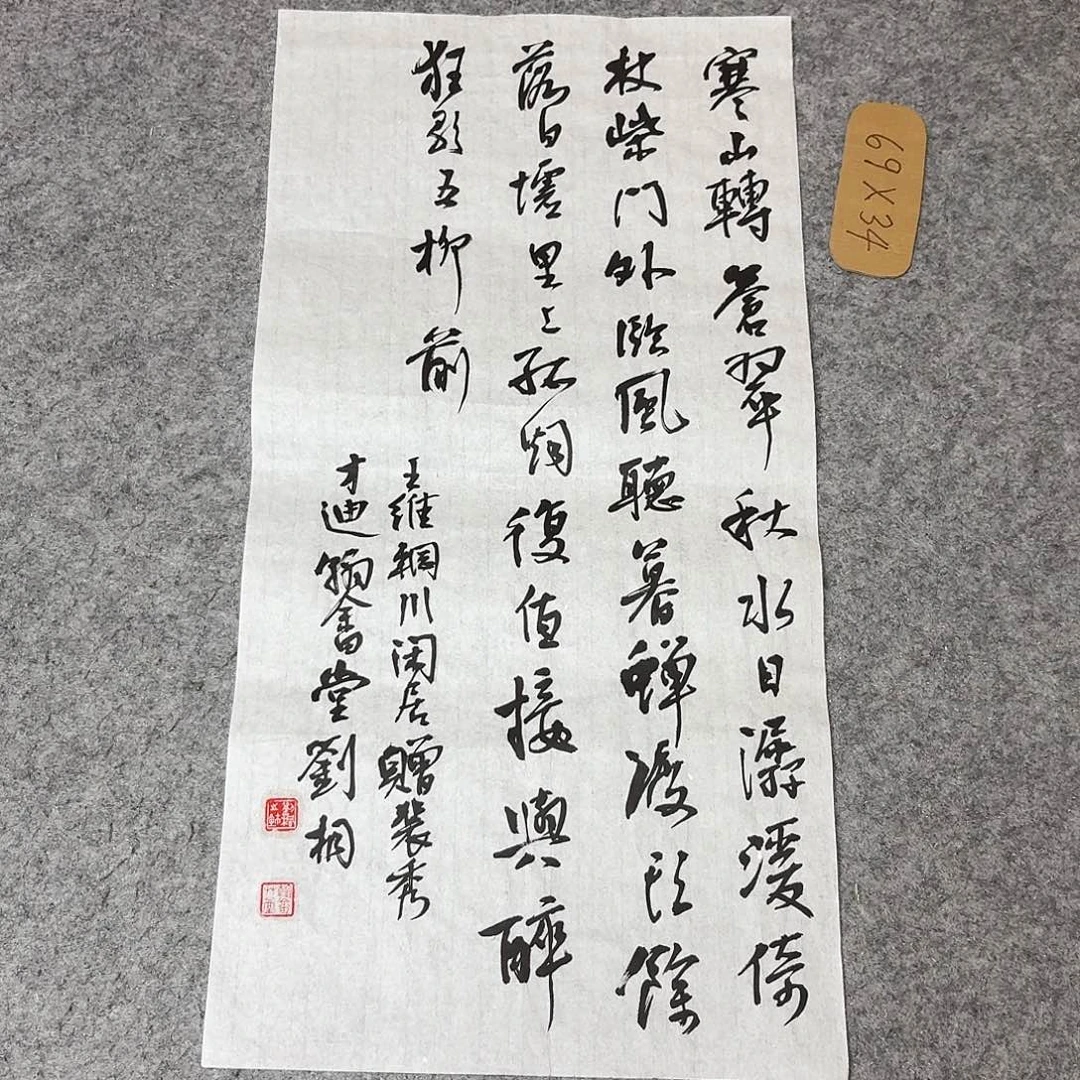 寒山轉蒼翠秋水日潺湲倚
杖柴門外臨風聽暮蟬渡頭餘
落日墟里上孤烟復值接輿醉
狂歌五柳前
王維輞川闲居贈裴秀
才迪翰畬堂劉
69X34